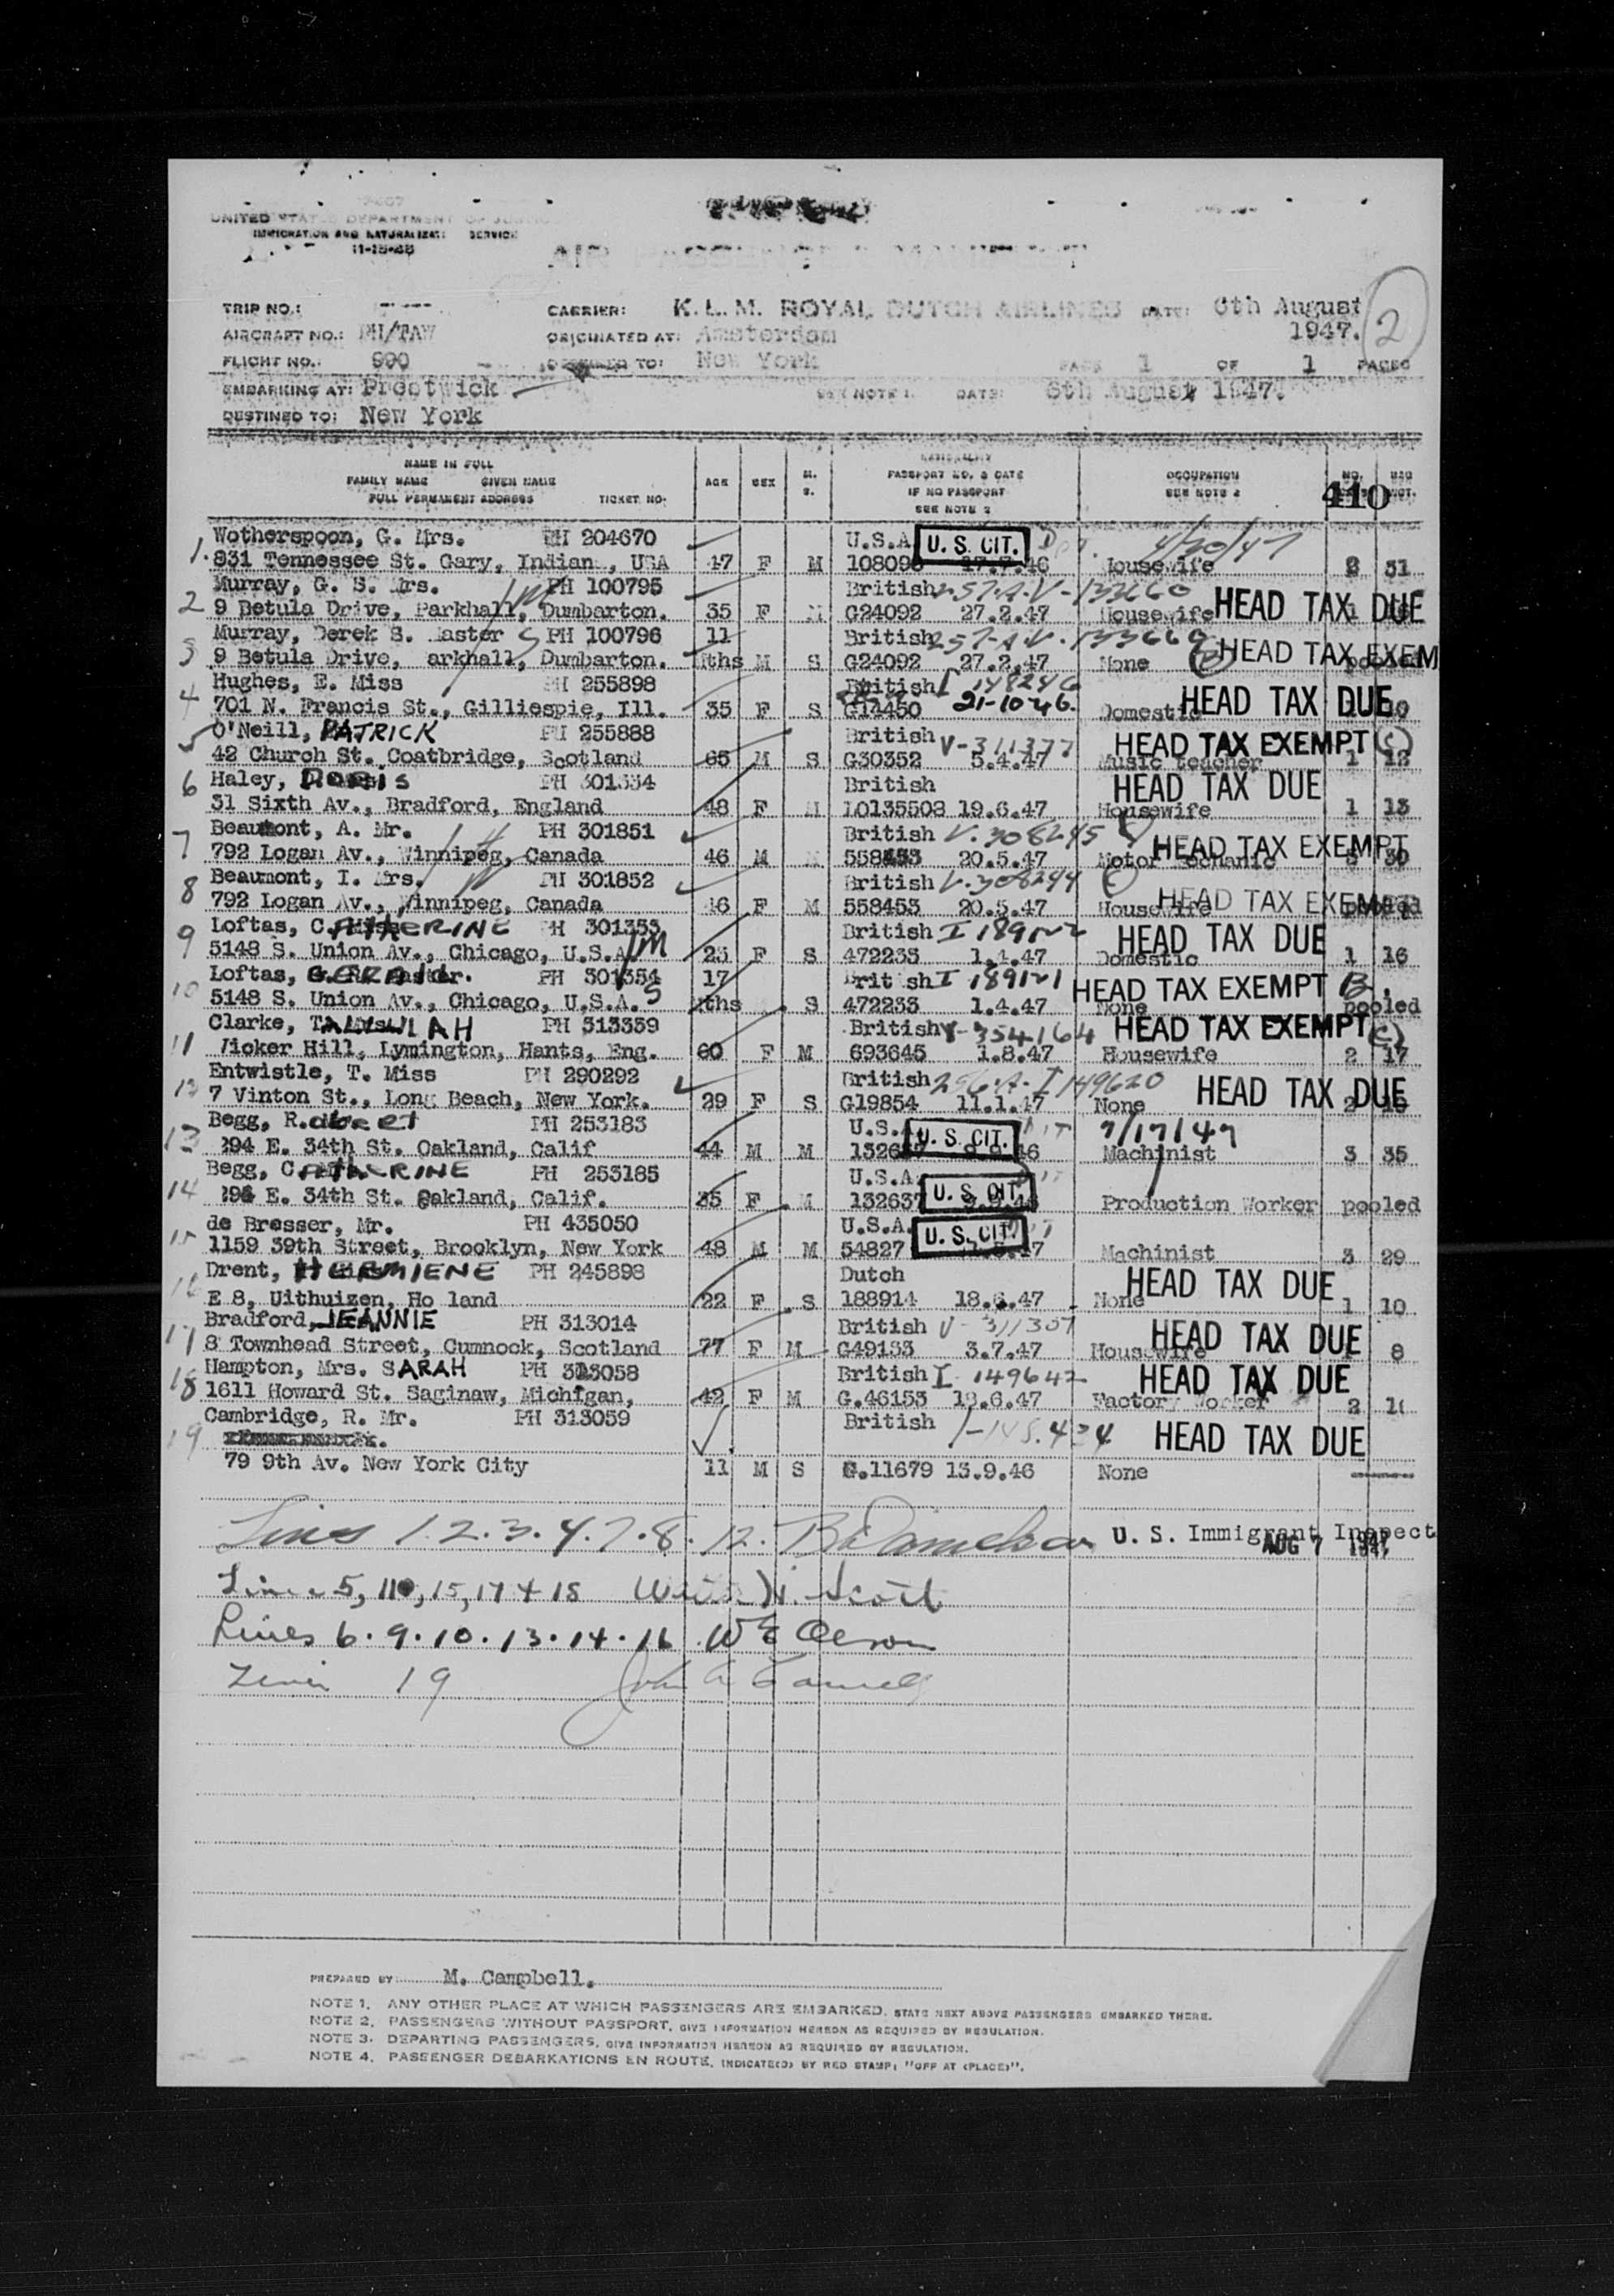 UNITED STATES DEPARTMENT OF JUSTICE
IMMIGRATION AND NATURALIZATION SERVICE
11-15-45
AIR PASSENGER MANIFEST
TRIP NO.: CARRIER: K.L.M. ROYAL DUTCH AIRLINES DATE: 6th August 1947. 2
AIRCRAFT NO.: PH/TAW ORIGINATED AT: Amsterdam
FLIGHT NO.: DESTINED TO: New York PAGE 1 OF 1 PAGES
EMBARKING AT: Prestwick SEE NOTE 1. DATE: 6th August 1947.
DESTINED TO: New York
NAME IN FULL FAMILY NAME GIVEN NAME FULL PERMANENT ADDRESS TICKET NO. AGE SEX M. S. NATIONALITY PASSPORT NO. & DATE IF NO PASSPORT SEE NOTE 2 OCCUPATION SEE NOTE 2 NO. BAG WGT.
Wotherspoon, G. Mrs. PH 204670 U.S.A. U. S. CIT. 4/30/47
1. 831 Tennessee St. Gary, Indiana, USA 47 F M Housewife 2 31
Murray, G. S. Mrs. PH 100795 British
2 9 Betula Drive, Parkhall, Dumbarton. 35 F M G24092 27.2.47 Housewife HEAD TAX DUE
Murray, Derek S. Master PH 100796 11 British
3 9 Betula Drive, Parkhall, Dumbarton. mths M S G24092 27.2.47 None HEAD TAX EXEM pooled
Hughes, E. Miss PH 255898 British I 148246
4 701 N. Francis St., Gilliespie, Ill. 35 F S G14450 21-10-46. Domestic HEAD TAX DUE
O'Neill, PATRICK PH 255888 British V-311377 HEAD TAX EXEMPT (C)
5 42 Church St. Coatbridge, Scotland 65 M S G30352 5.4.47 Music teacher 1 12
Haley, DORIS PH 301334 British HEAD TAX DUE
6 31 Sixth Av., Bradford, England 48 F M 10135508 19.6.47 Housewife 1 13
Beaumont, A. Mr. PH 301851 British V.308245
7 792 Logan Av., Winnipeg, Canada 46 M M 558453 20.5.47 Motor Mechanic HEAD TAX EXEMPT 3 30
Beaumont, I. Mrs. PH 301852 British V.308244
8 792 Logan Av., Winnipeg, Canada 46 F M 558453 20.5.47 Housewife HEAD TAX EXEMPT pooled
Loftas, CATHERINE PH 301353 British HEAD TAX DUE
9 5148 S. Union Av., Chicago, U.S.A. F S 472233 1.4.47 Domestic 1 16
Loftas, GERALD PH 301354 17 British I 189121 HEAD TAX EXEMPT B.
10 5148 S. Union Av., Chicago, U.S.A. mths S 472233 1.4.47 None pooled
Clarke, TALULAH PH 313339 British V-354164 HEAD TAX EXEMPT (C)
11 Vicker Hill, Lymington, Hants, Eng. 60 F M 693645 1.8.47 Housewife 2 17
Entwistle, T. Miss PH 290292 British 296.A. I 149620
12 7 Vinton St., Long Beach, New York. 29 F S G19854 11.1.47 None HEAD TAX DUE
Begg, Robert PH 253183 U.S.A. U. S. CIT. 7/17/47
13 294 E. 34th St. Oakland, Calif 44 M M Machinist 3 35
Begg, CATHERINE PH 253185 U.S.A. U. S. CIT.
14 294 E. 34th St. Oakland, Calif. 35 F M 132637 Production Worker pooled
de Bresser, Mr. PH 435050 U.S.A. U. S. CIT.
15 1159 39th Street, Brooklyn, New York 48 M M 54827 Machinist 3 29
Drent, HERMIENE PH 245898 Dutch HEAD TAX DUE
16 E 8, Uithuizen, Holland 22 F S 188914 18.6.47 None 1 10
Bradford, JEANNIE PH 313014 British V-311307
17 8 Townhead Street, Cumnock, Scotland 77 F M G49133 3.7.47 Housewife HEAD TAX DUE 8
Hampton, Mrs. SARAH PH 313058 British I 149642 HEAD TAX DUE
18 1611 Howard St. Saginaw, Michigan, 42 F M G.46153 18.6.47 Factory Worker 2
Cambridge, R. Mr. PH 313059 British HEAD TAX DUE
19
79 9th Av. New York City 11 M S G.11679 13.9.46 None
Lines 1.2.3.4.7.8.12. U. S. Immigrant Inspect
AUG 7 1947
Lines 5, 11, 15, 17 + 18 Scott
Lines 6.9.10.13.14.16 W E Olson
Line 19 John
PREPARED BY: M. Campbell.
NOTE 1. ANY OTHER PLACE AT WHICH PASSENGERS ARE EMBARKED, STATE NEXT ABOVE PASSENGERS EMBARKED THERE.
NOTE 2. PASSENGERS WITHOUT PASSPORT, GIVE INFORMATION HEREON AS REQUIRED BY REGULATION.
NOTE 3. DEPARTING PASSENGERS, GIVE INFORMATION HEREON AS REQUIRED BY REGULATION.
NOTE 4. PASSENGER DEBARKATIONS EN ROUTE, INDICATE(D) BY RED STAMP: "OFF AT (PLACE)".